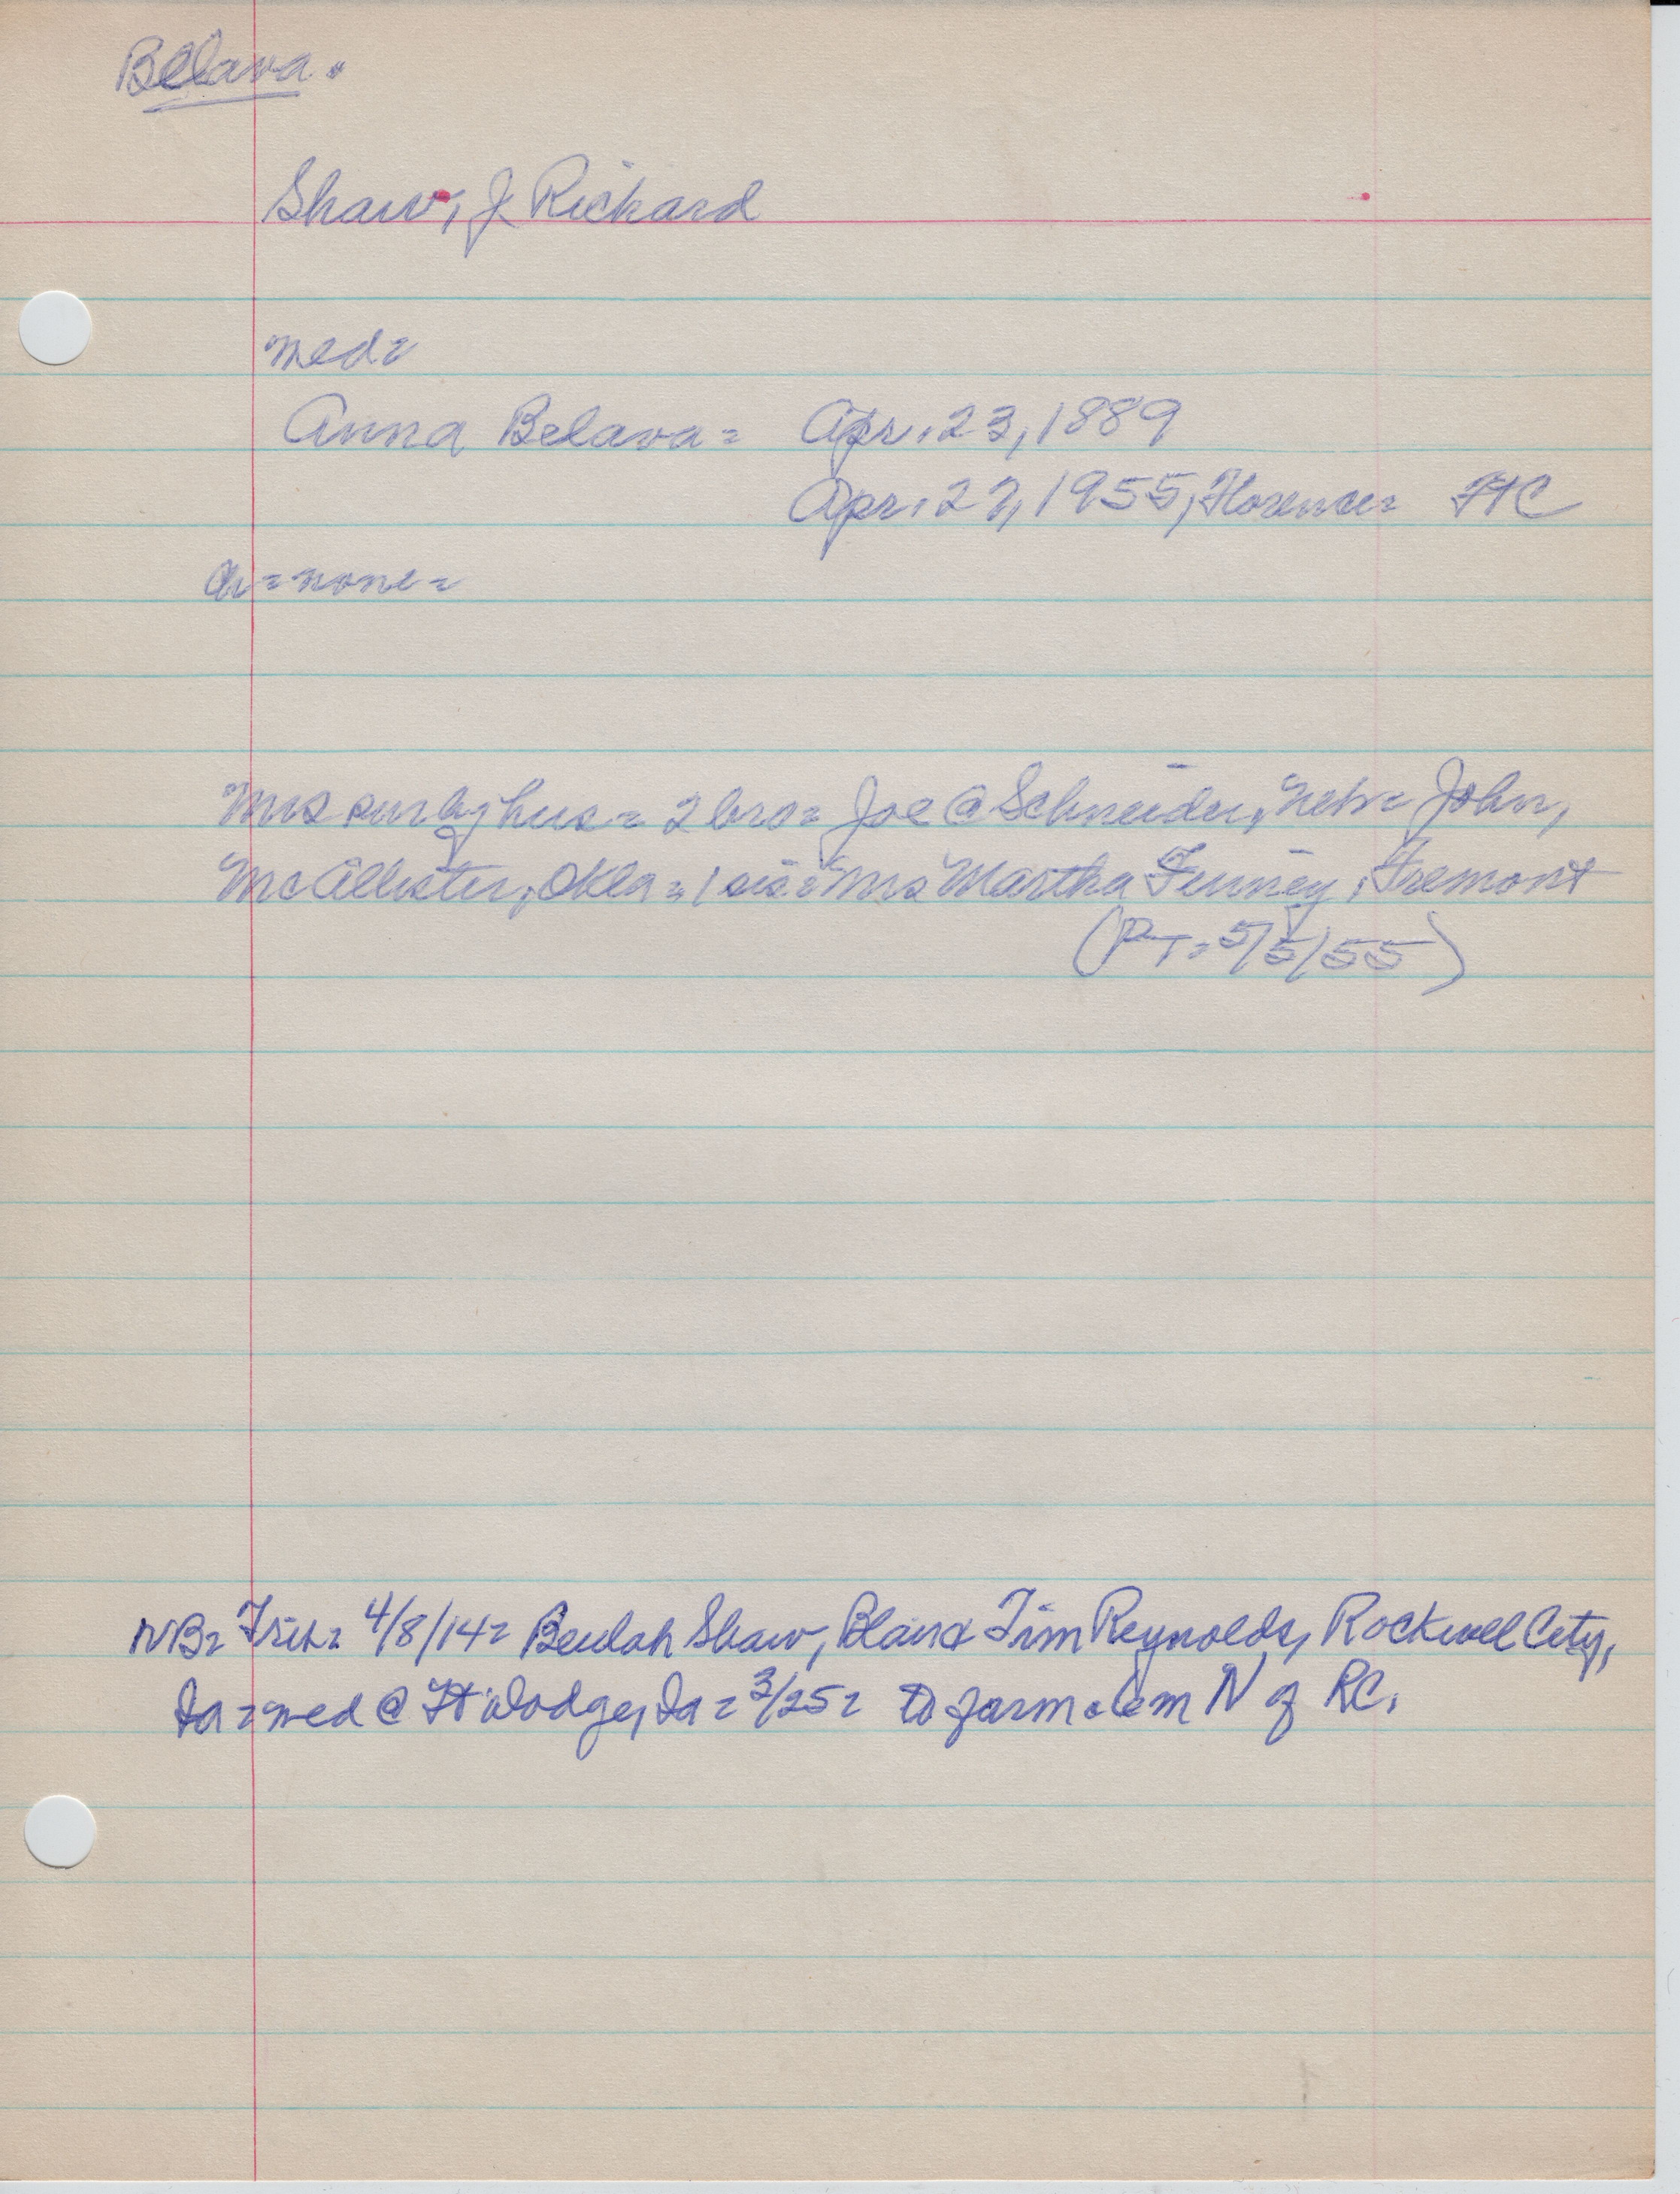 Belava.
Shaw, J. Richard
med=
Anna Belava= Apr. 23, 1889
Apr. 27, 1955, Florence= FHC
ch=none=
Mrs sur by hus= 2 bro= Joe @ Schneider, Neb= John,
McAllister, Okla=1 sis= Mrs Martha Finney, Fremont
(PT=5/5/55)
NB= Trib= 4/8/14= Beulah Shaw, Blair & Tim Reynolds, Rockwell City,
Ia=med @ Ft Dodge, Ia= 3/25= to farm @ 6m N of RC.